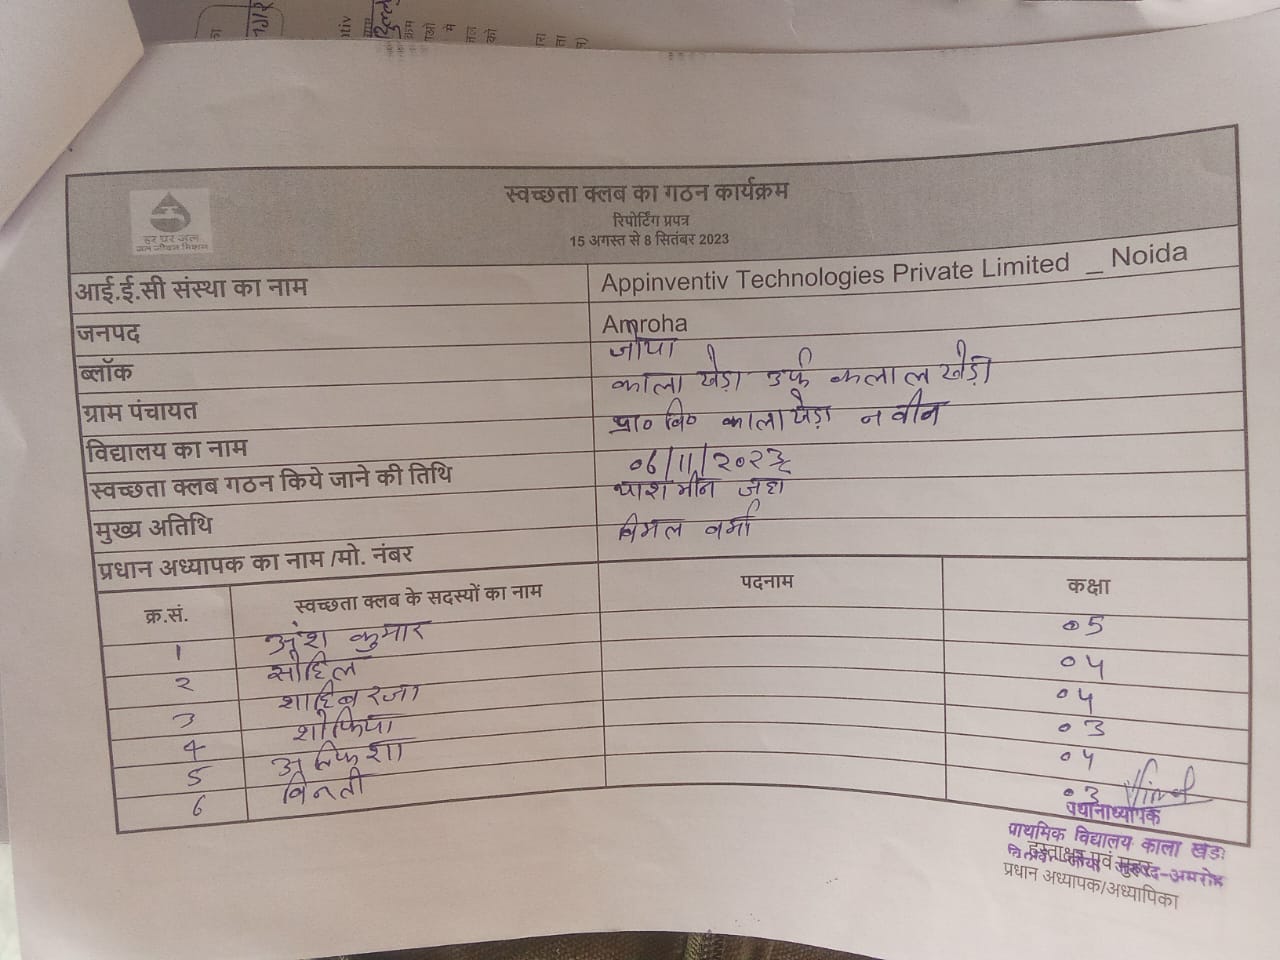 स्वच्छता क्लब का गठन कार्यक्रम
रिपोर्टिंग प्रपत्र
15 अगस्त से 8 सितंबर 2023
हर घर जल
जल जीवन मिशन
आई.ई.सी संस्था का नाम Appinventiv Technologies Private Limited _ Noida
जनपद Amroha
ब्लॉक जोया
ग्राम पंचायत काला खेड़ा उर्फ कलाल खेड़ा
विद्यालय का नाम प्रा० वि० काला खेड़ा नवीन
स्वच्छता क्लब गठन किये जाने की तिथि 06/11/2023
मुख्य अतिथि याशमीन जहां
प्रधान अध्यापक का नाम /मो. नंबर विमल वर्मा
क्र.सं. स्वच्छता क्लब के सदस्यों का नाम पदनाम कक्षा
1 अंश कुमार 05
2 सोहिल 04
3 शाहिब रजा 04
4 शोफिया 03
5 04
6 विनती 03
प्रधानाध्यापक
प्राथमिक विद्यालय काला खेडा
हस्ताक्षर एवं मुहर
प्रधान अध्यापक/अध्यापिका